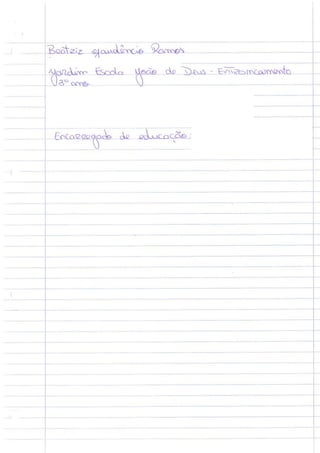 Beatriz Gaudêncio Ramos
Jardim Escola João de Deus - Entroncamento
3º ano
Encarregado de educação: